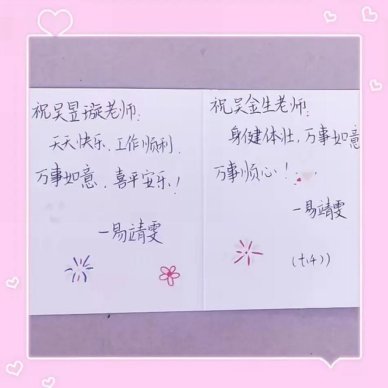 祝吴昱璇老师:
天天快乐、工作顺利、
万事如意、喜平安乐!
—易靖雯
祝吴金生老师:
身健体壮,万事如意
万事顺心!
—易靖雯